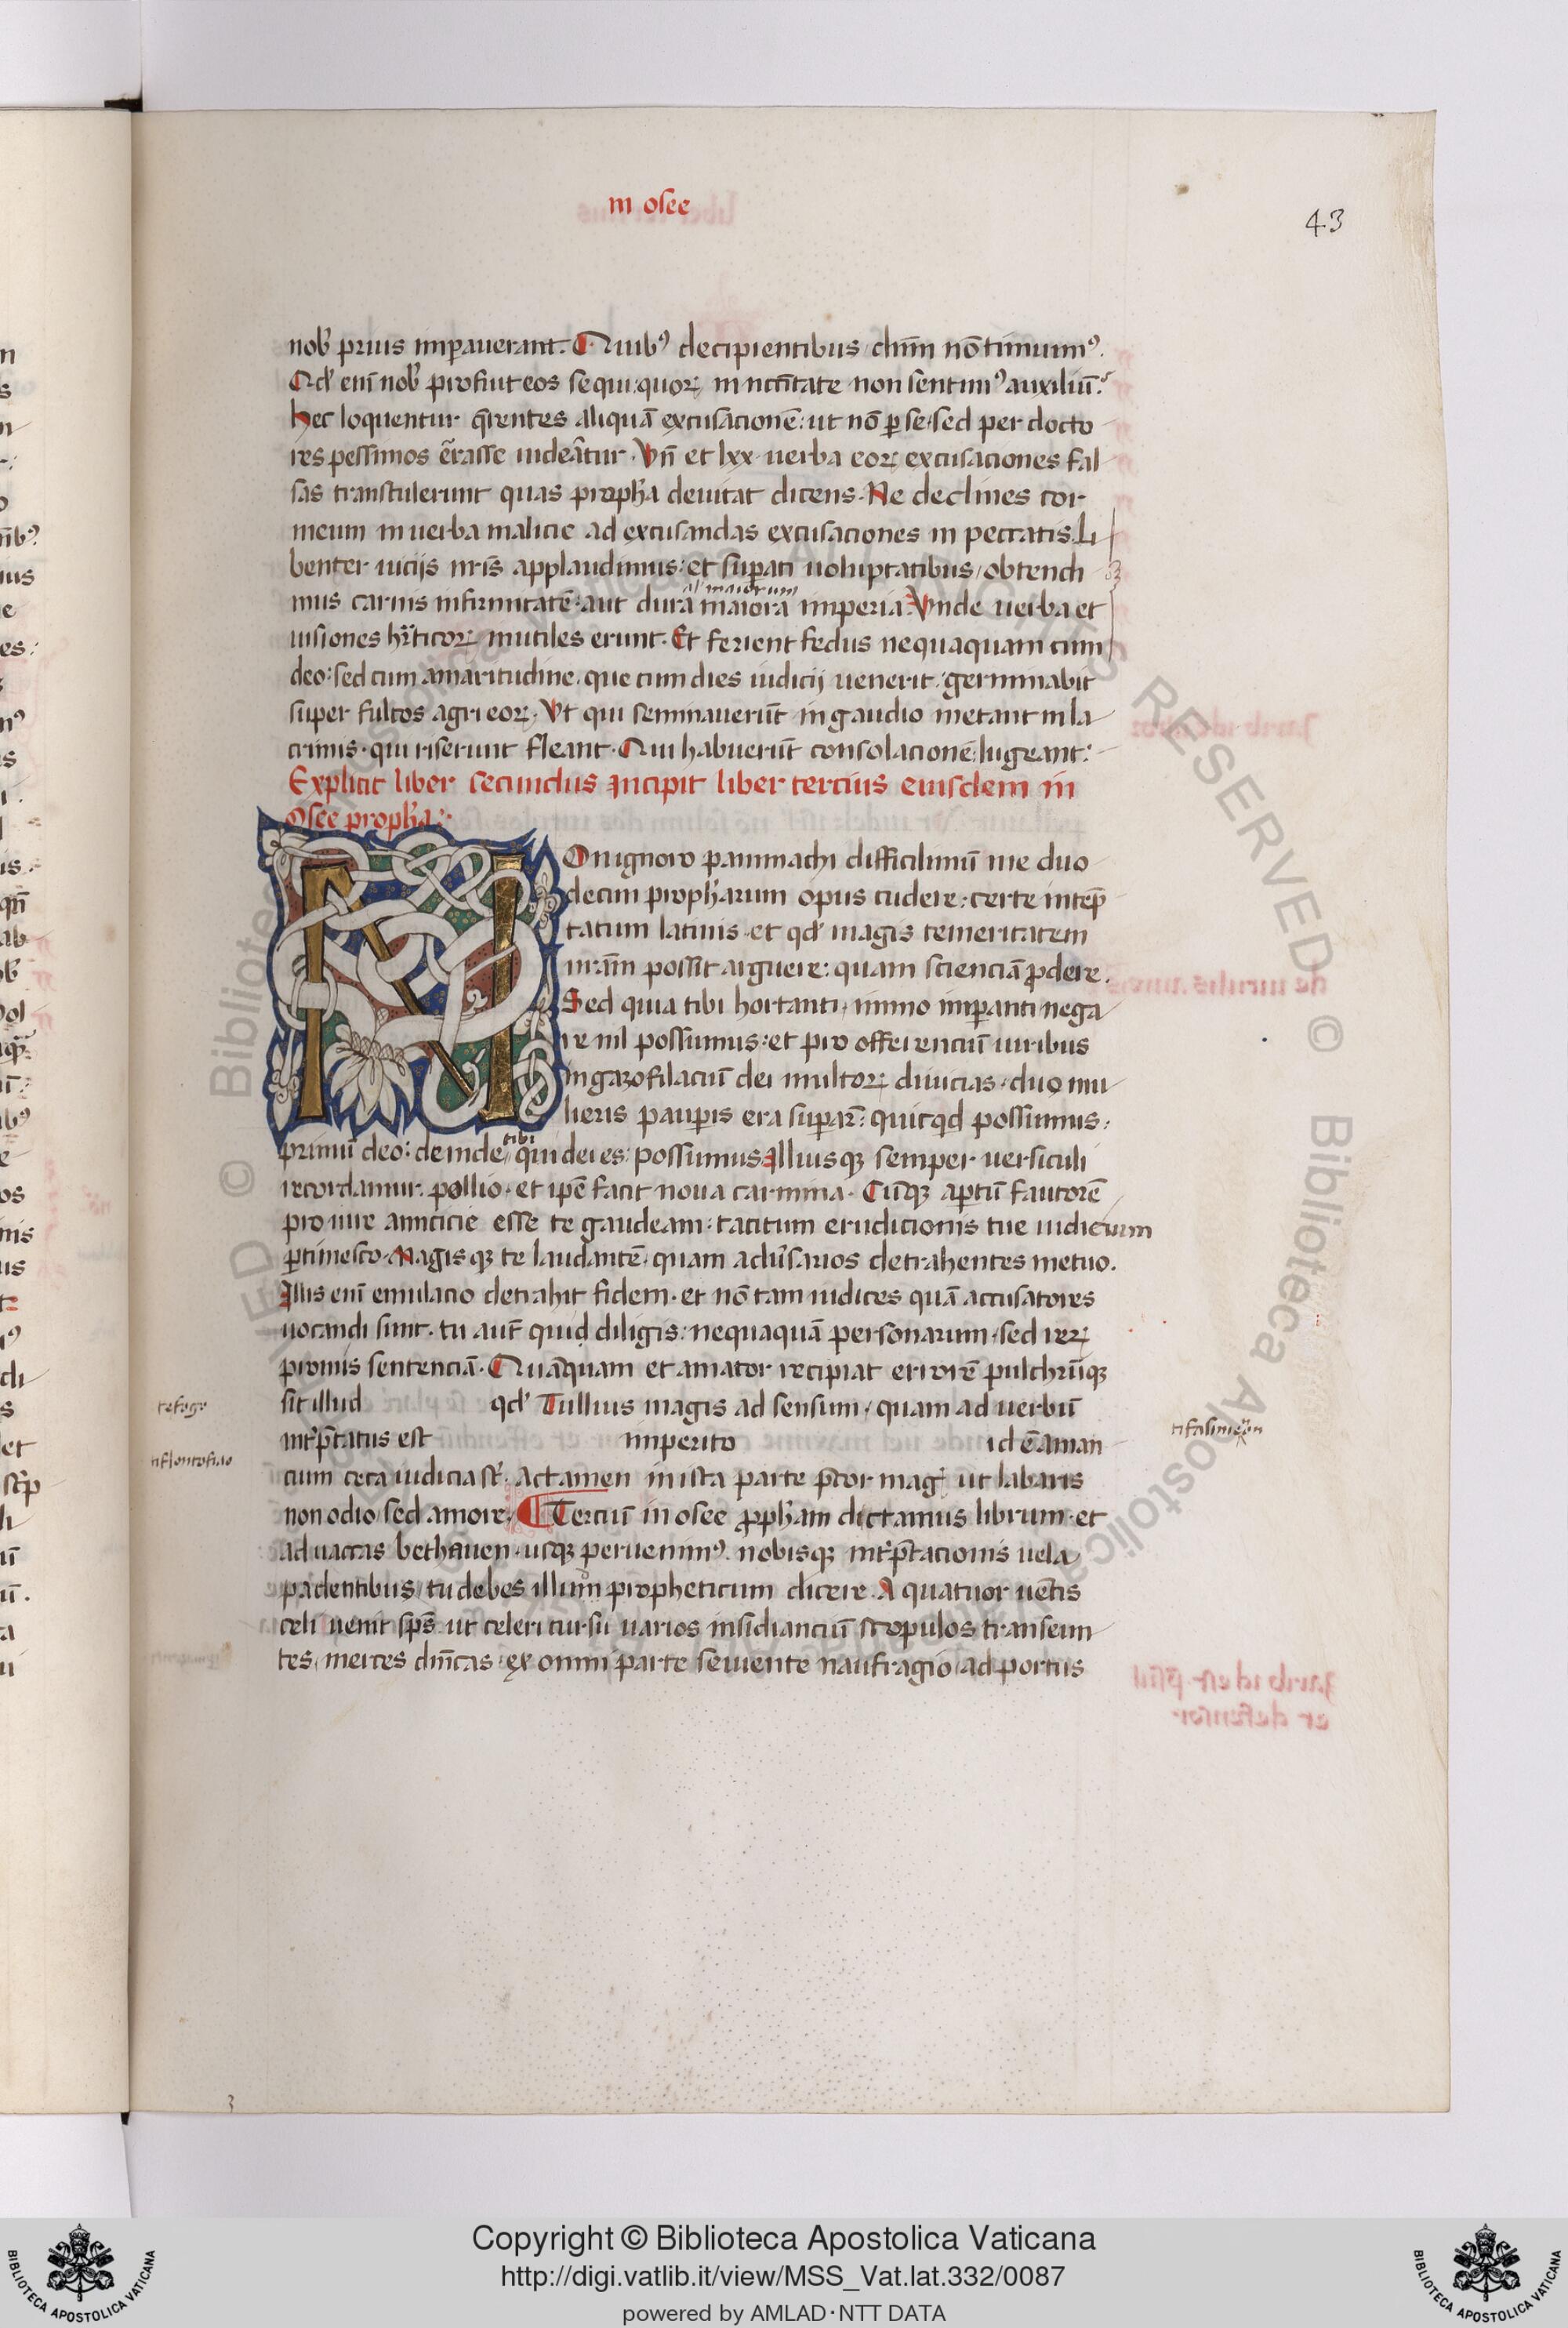 in osee
43
nob̕ prius imꝑauerant. Quibꝰ decipientibus dn̄m nō timuimꝰ.
Qd̕ enī nob̕ profuit eos sequi: quoꝝ in nc̄c̄itate non sentimꝰ auxiliū.
hec loquentur q̄rentes aliquā excusacionē: ut nō ꝑ se: sed per docto
res pessimos ēr̄asse uideātur. Vn̄ et lxx uerba eoꝝ excusaciones fal
sas transtulerunt quas propha deuitat dicens. Ne declines cor
meum in uerba malicie ad excusandas excusaciones in peccatis. Li
benter uicijs nr̄is applaudimus: et suꝑati uoluptatibus, obtendi
al' maiorum
mus carnis infirmitatē: aut dura maiora imperia. Vnde uerba et
uisiones hr̄ticoꝝ inutiles erunt. Et ferient fedus nequaquam cum
deo: sed cum amaritudine. que cum dies iudicij uenerit: germinabit
super sulcos agri eoꝝ. Vt qui seminauerūt in gaudio metant in la
crimis. qui riserunt fleant. Qui habuerūt consolacionē lugeant:
Explicit liber secundus Incipit liber tercius eiusdem in
Osee propha:
NOn ignoro pammachi difficilimū me duo
decim propharum opus cudere: certe intep̄
tatum latinis et qd̕ magis temeritatem
nr̄am possit arguere: quam scienciā ꝓdere.
Sed quia tibi hortanti, immo imꝑanti nega
re nil possumus: et pro offerenciū uiribus
in gazofilaciū dei multoꝝ diuicias. duo mu
lieris pauꝑis era suꝑar̄: quicqd possumus:
tibi
primū deo: deinde qui dei es: possumus Illiusqꝫ semper uersiculi
recordamur. pollio. et ip̄e facit noua carmina. Cūqꝫ aptū fautorē
pro iure amicicie esse te gaudeam: tacitum erudicionis tue iudicium
ꝑtimesco. Magisqꝫ te laudantē, quam aduersarios detrahentes metuo.
Illis enī emulacio detrahit fidem. et nō tam iudices quā accusatores
uocandi sunt. tu aut̄ quid diligis: nequaquā personarum, sed reꝝ
promis sentenciā. Quāquam et amator recipiat errorē pulchrūqꝫ
tefogo
sit illud qd̕ Tullius magis ad sensum, quam ad uerbū
tifalimeon
int̕p̄tatus est imperito id ē aman
tiflontofiao
cium ceca iudicia st̄. Actamen in ista parte p̄cor mag̕ ut labaris
non odio sed amore. Terciū in osee ꝓpham dictamus librum. et
ad uaccas bethauen. usqꝫ peruenimꝰ. nobisqꝫ int̕p̄tacionis uela
padentibus, tu debes illum propheticum dicere. A quatuor uentis
celi uenit sp̄s ut celeri cursu uarios insidianciū scopulos transeun
tes, merces dn̄icas. ex omni parte seuiente naufragio ad portus
3
Copyright © Biblioteca Apostolica Vaticana
http://digi.vatlib.it/view/MSS_Vat.lat.332/0087
powered by AMLAD·NTT DATA
BIBLIOTECA APOSTOLICA VATICANA
BIBLIOTECA APOSTOLICA VATICANA